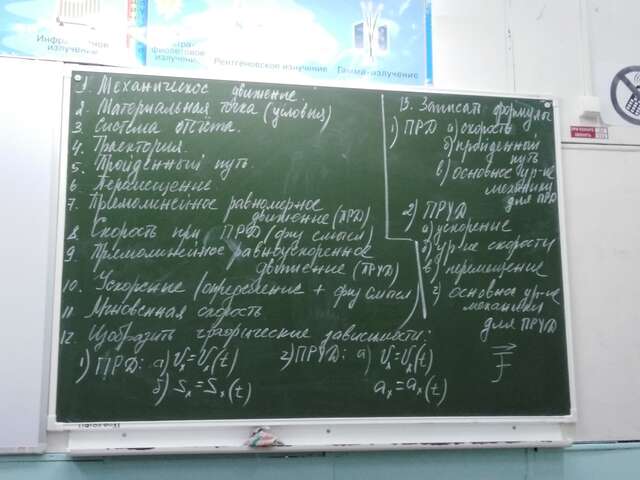 Инфракрасное
излучение
фиолетовое
излучение
Рентгеновское излучение
Гамма-излучение
1. Механическое движение
2. Материальная точка (условия)
3. Система отсчёта.
4. Траектория.
5. Пройденный путь.
6. Перемещение
7. Прямолинейное равномерное
движение (ПРД)
8. Скорость при ПРД (физ смысл)
9. Прямолинейное равноускоренное
движение (ПРУД)
10. Ускорение (определение + физ смысл)
11. Мгновенная скорость
12. Изобразить графические зависимости:
1) ПРД: а) Vx = Vx(t)
б) Sx = Sx(t)
2) ПРУД: а) Vx = Vx(t)
ax = ax(t)
13. Записать формулы
1) ПРД а) скорость
б) пройденный
путь
в) основное ур-ие
механики
для ПРД
2) ПРУД
а) ускорение
б) ур-ие скорости
в) перемещение
г) основное ур-ие
механики
для ПРУД